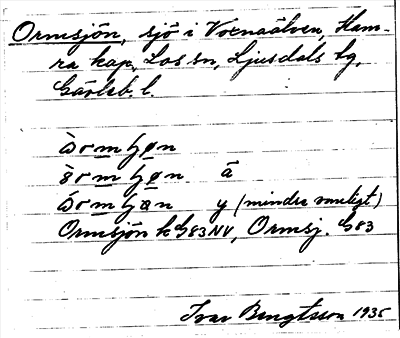 Ormsjön, sjö i Voxnaälven, Ham-
ra kap, Los sn, Ljusdals tg,
Gävleb. l.
å
y (mindre vanligt)
Ormsjön k G83NV, Ormsj. G83
Ivar Bengtsson 1935